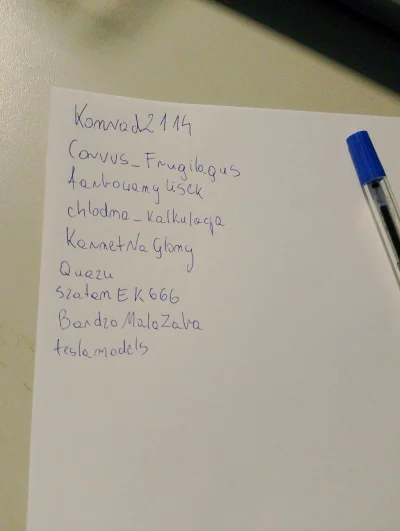 Konrad2114
Corvus_Frugilagus
farbowanyLisek
chlodna_kalkulacja
KarnetNaGlony
Quazu
szatanEK666
BardzoMalaZaba
teslamodels